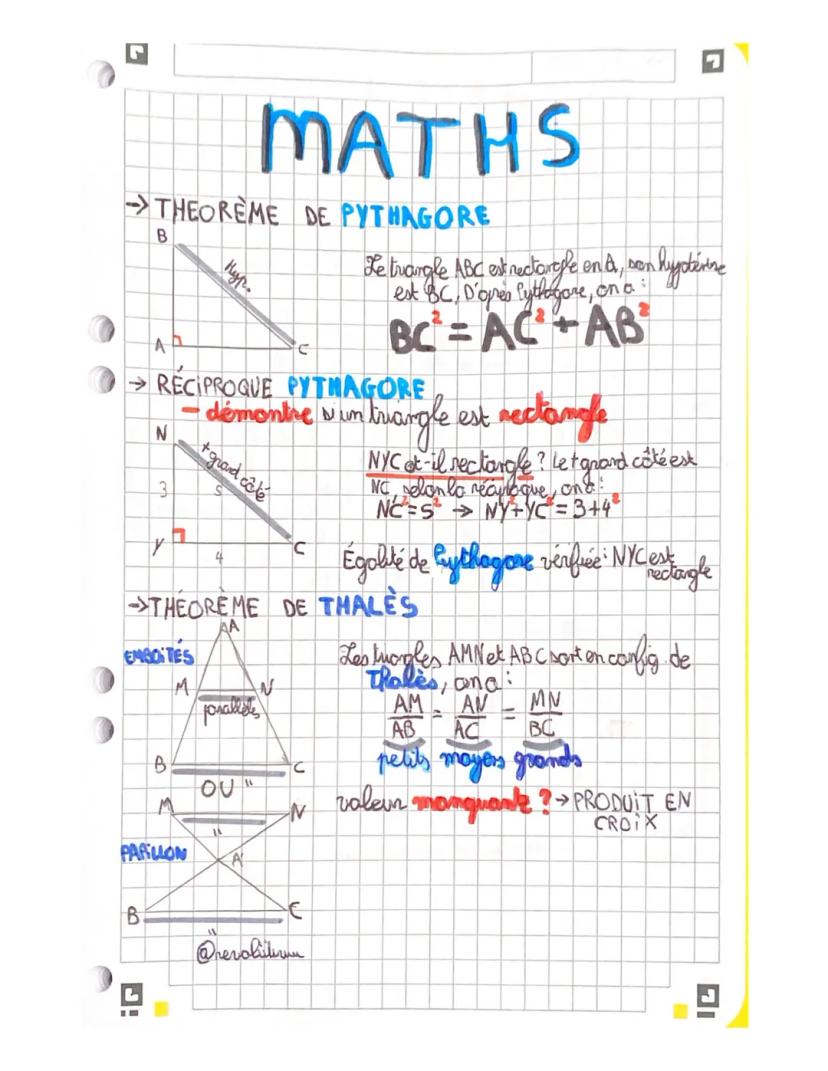 MATHS
→ THEORÈME DE PYTHAGORE
B
Hyp.
A
C
Le triangle ABC est rectangle en A, son hypoténine
est BC, D'après Pythagore, on a :
BC² = AC² + AB²
→ RÉCIPROQUE PYTHAGORE
- démontre si un triangle est rectangle
N
+ grand côté
3
5
Y
4
C
NYC est-il rectangle ? Le + grand côté est
NC, selon la réciproque, on a :
NC² = 5² → NY² + YC² = 3 + 4²
Égalité de Pythagore vérifiée : NYC est
rectangle
→ THÉORÈME DE THALÈS
A
EMBOITÉS
M
N
parallèles
B
C
OU "
M
N
"
PAPILLON
A
B
C
"
Les triangles AMN et ABC sont en config. de
Thalès, on a :
AM/AB = AN/AC = MN/BC
petits moyens grands
valeur manquante ? → PRODUIT EN
CROIX